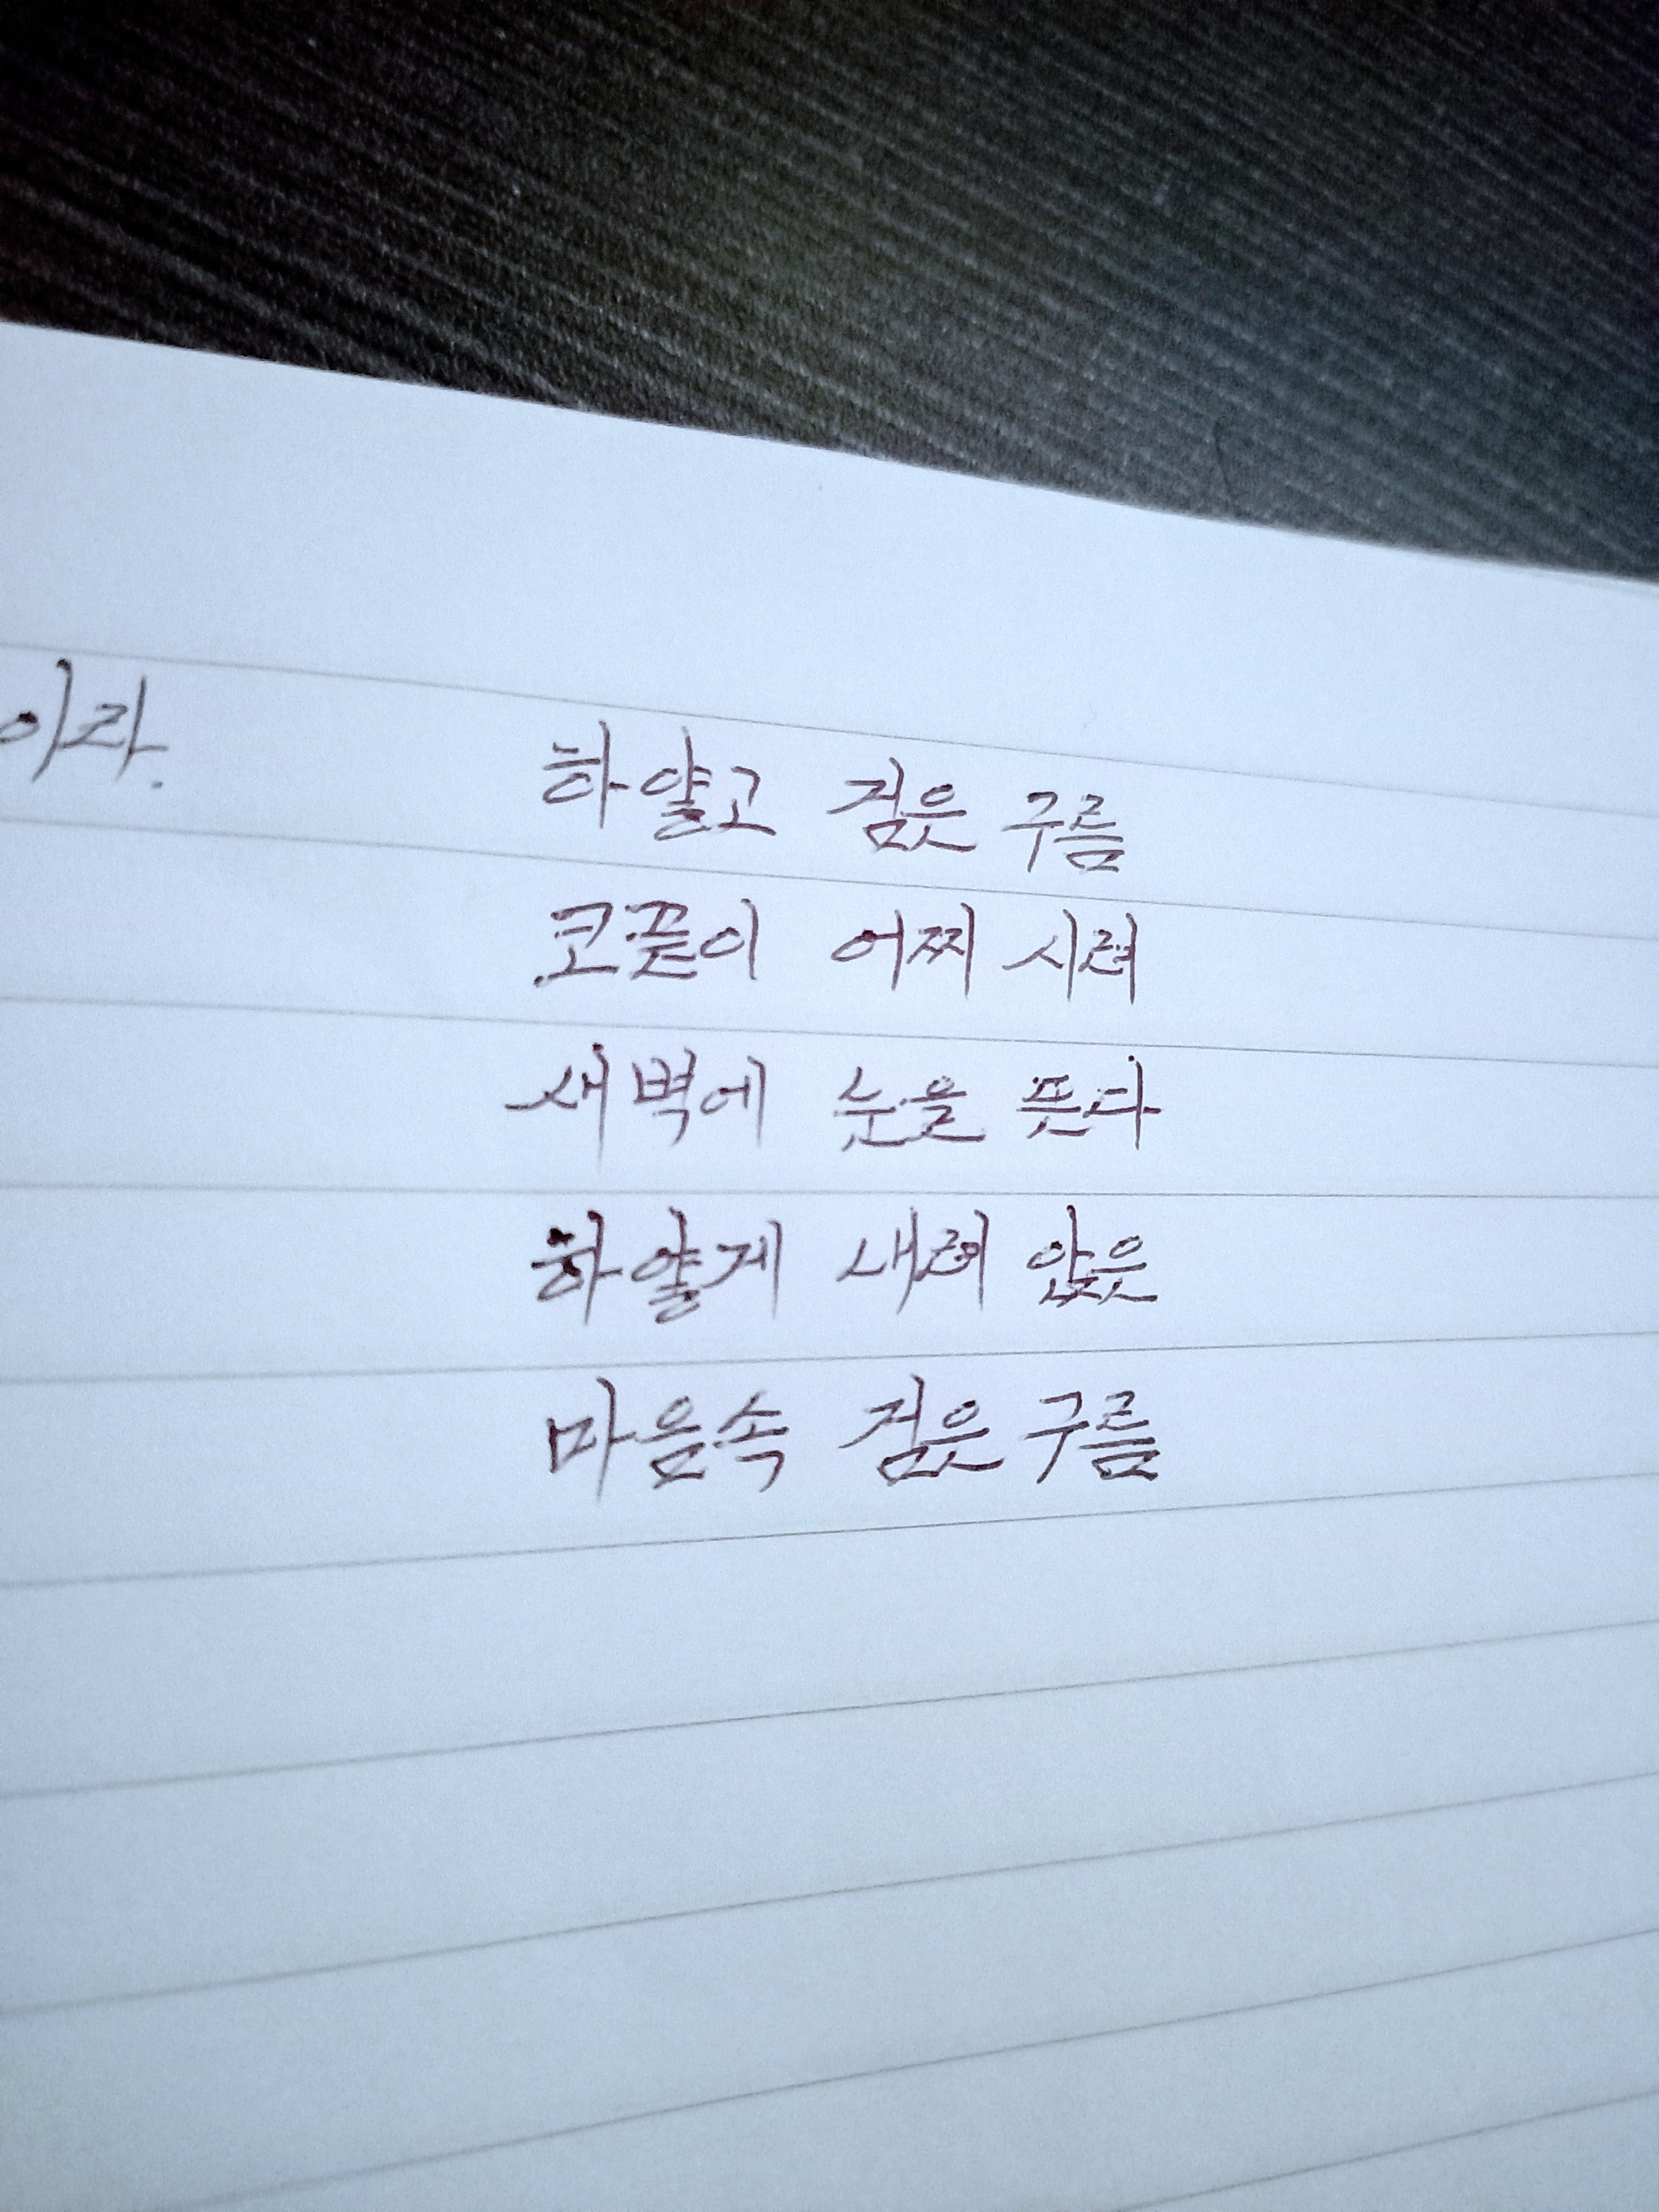 이라.
하얗고 검은 구름
코끝이 어찌 시려
새벽에 눈을 뜬다
하얗게 내려 앉은
마음속 검은 구름